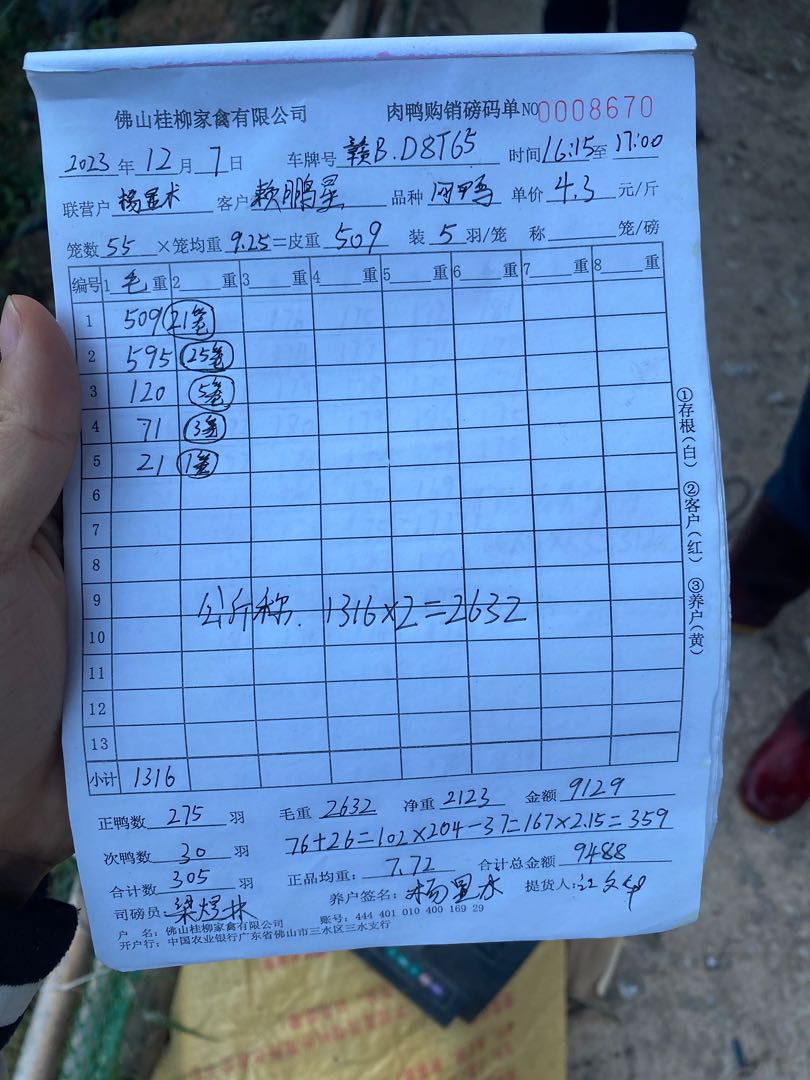 佛山桂柳家禽有限公司 肉鸭购销磅码单 NO 0008670
2023 年 12 月 7 日 车牌号 赣B.D8T65 时间 16:15 至 17:00
联营户 客户 赖鹏星 品种 单价 4.3 元/斤
笼数 55 ×笼均重 9.25 =皮重 509 装 5 羽/笼 称 笼/磅
编号 1 毛 重 2 重 3 重 4 重 5 重 6 重 7 重 8 重
1 509 21笼
2 595 25笼
3 120 5笼
4 71 3笼
5 21 1笼
6
7
8
9
公斤称. 1316×2=2632
10
11
12
13
小计 1316
①存根(白) ②客户(红) ③养户(黄)
正鸭数 275 羽 毛重 2632 净重 2123 金额 9129
76+26=102×204-37=167×2.15=359
次鸭数 30 羽
合计数 305 羽 正品均重: 7.72 合计总金额 9488
司磅员: 梁煜林 养户签名: 提货人:
户 名: 佛山桂柳家禽有限公司 账号: 444 401 010 400 169 29
开户行: 中国农业银行广东省佛山市三水区三水支行